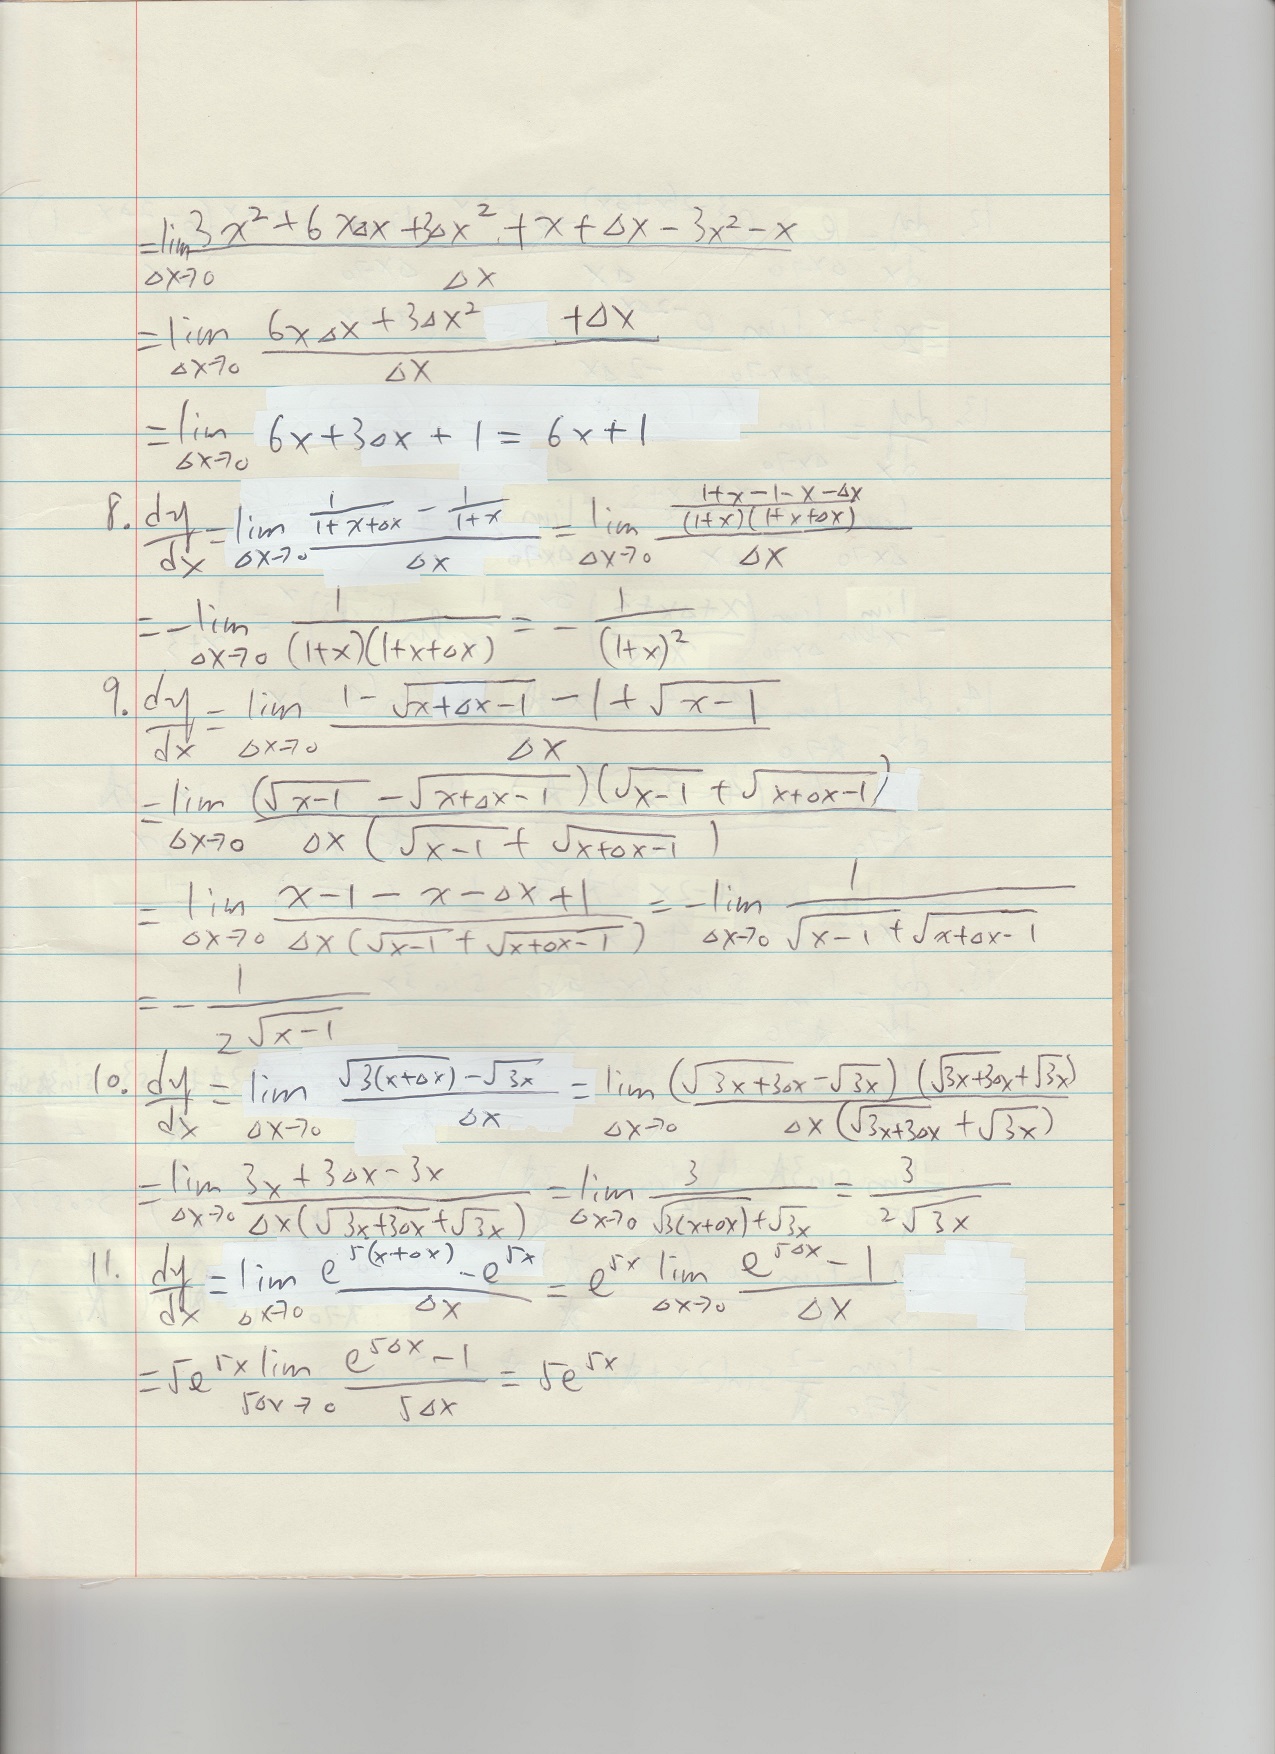 = lim 3x² + 6xΔx + 3Δx² + x + Δx − 3x² − x
Δx→0 Δx
= lim 6xΔx + 3Δx² + Δx
Δx→0 Δx
= lim 6x + 3Δx + 1 = 6x + 1
Δx→0
8. dy/dx = lim Δx→0 (1/(1+x+Δx) − 1/(1+x))/Δx = lim Δx→0 ((1+x−1−x−Δx)/((1+x)(1+x+Δx)))/Δx
= − lim Δx→0 1/((1+x)(1+x+Δx)) = − 1/(1+x)²
9. dy/dx = lim Δx→0 (1 − √(x+Δx−1) − 1 + √(x−1))/Δx
= lim Δx→0 (√(x−1) − √(x+Δx−1))(√(x−1) + √(x+Δx−1))/(Δx(√(x−1) + √(x+Δx−1)))
= lim Δx→0 (x−1−x−Δx+1)/(Δx(√(x−1) + √(x+Δx−1))) = − lim Δx→0 1/(√(x−1) + √(x+Δx−1))
= − 1/(2√(x−1))
10. dy/dx = lim Δx→0 (√(3(x+Δx)) − √(3x))/Δx = lim Δx→0 (√(3x+3Δx) − √(3x))(√(3x+3Δx) + √(3x))/(Δx(√(3x+3Δx) + √(3x)))
= lim Δx→0 (3x+3Δx−3x)/(Δx(√(3x+3Δx) + √(3x))) = lim Δx→0 3/(√(3(x+Δx)) + √(3x)) = 3/(2√(3x))
11. dy/dx = lim Δx→0 (e^(5(x+Δx)) − e^(5x))/Δx = e^(5x) lim Δx→0 (e^(5Δx) − 1)/Δx
= 5e^(5x) lim 5Δx→0 (e^(5Δx) − 1)/(5Δx) = 5e^(5x)